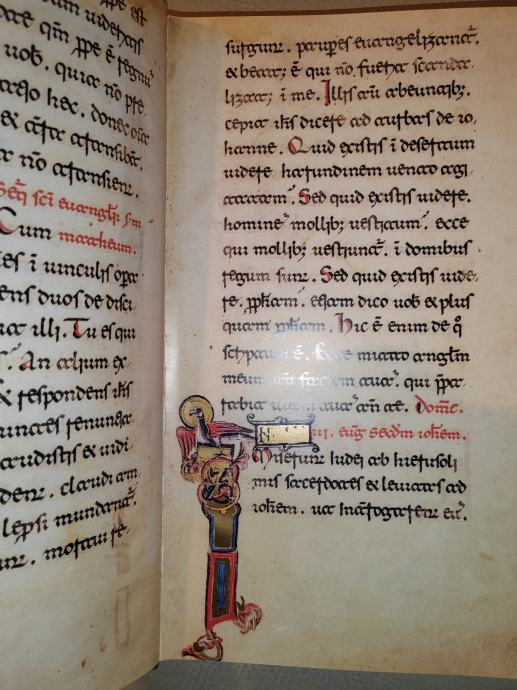 ppe est
cum uideritis
qm ppe ē regnū
uob. quia nō pre
hec. donec
nō transient.
Seq̄ sc̄i euangl̄ii sm̄
Cum mattheum.
es ī uinculis opa
ens duos de disci
illi. Tu es qui
An alium ex
& respondens ih̄s
euntes renuntia
audistis & uidi
dent. claudi am
lep̄si mundant̄.
mortui re
surgunt. paupes euangelizant̄.
& beat; ē qui nō. fuerit scanda
lizat; ī me. Illis aūt abeuntib;
cepit ih̄s dicere ad turbas de io
hanne. Quid existis ī desertum
uidere harundinem uento agi
tatam. Sed quid existis uidere.
hominē mollib; uestitum. ecce
qui mollib; uestiunt̄. ī domibus
regum sunt. Sed quid existis uide
re. pph̄am. etiam dico uob & plus
quam pph̄am. hic ē enim de q̊
schptum ē. Ecce mitto angl̄m
meum an̄ faciem tuā. qui p̄pa
rabit uiam tuā an̄ te. Domc̄.
eūg secdm ioh̄em.
Miserunt Iudei ab hierusoli
mis sacerdotes & leuitas ad
ioh̄em. ut Int̄rogarent eū.